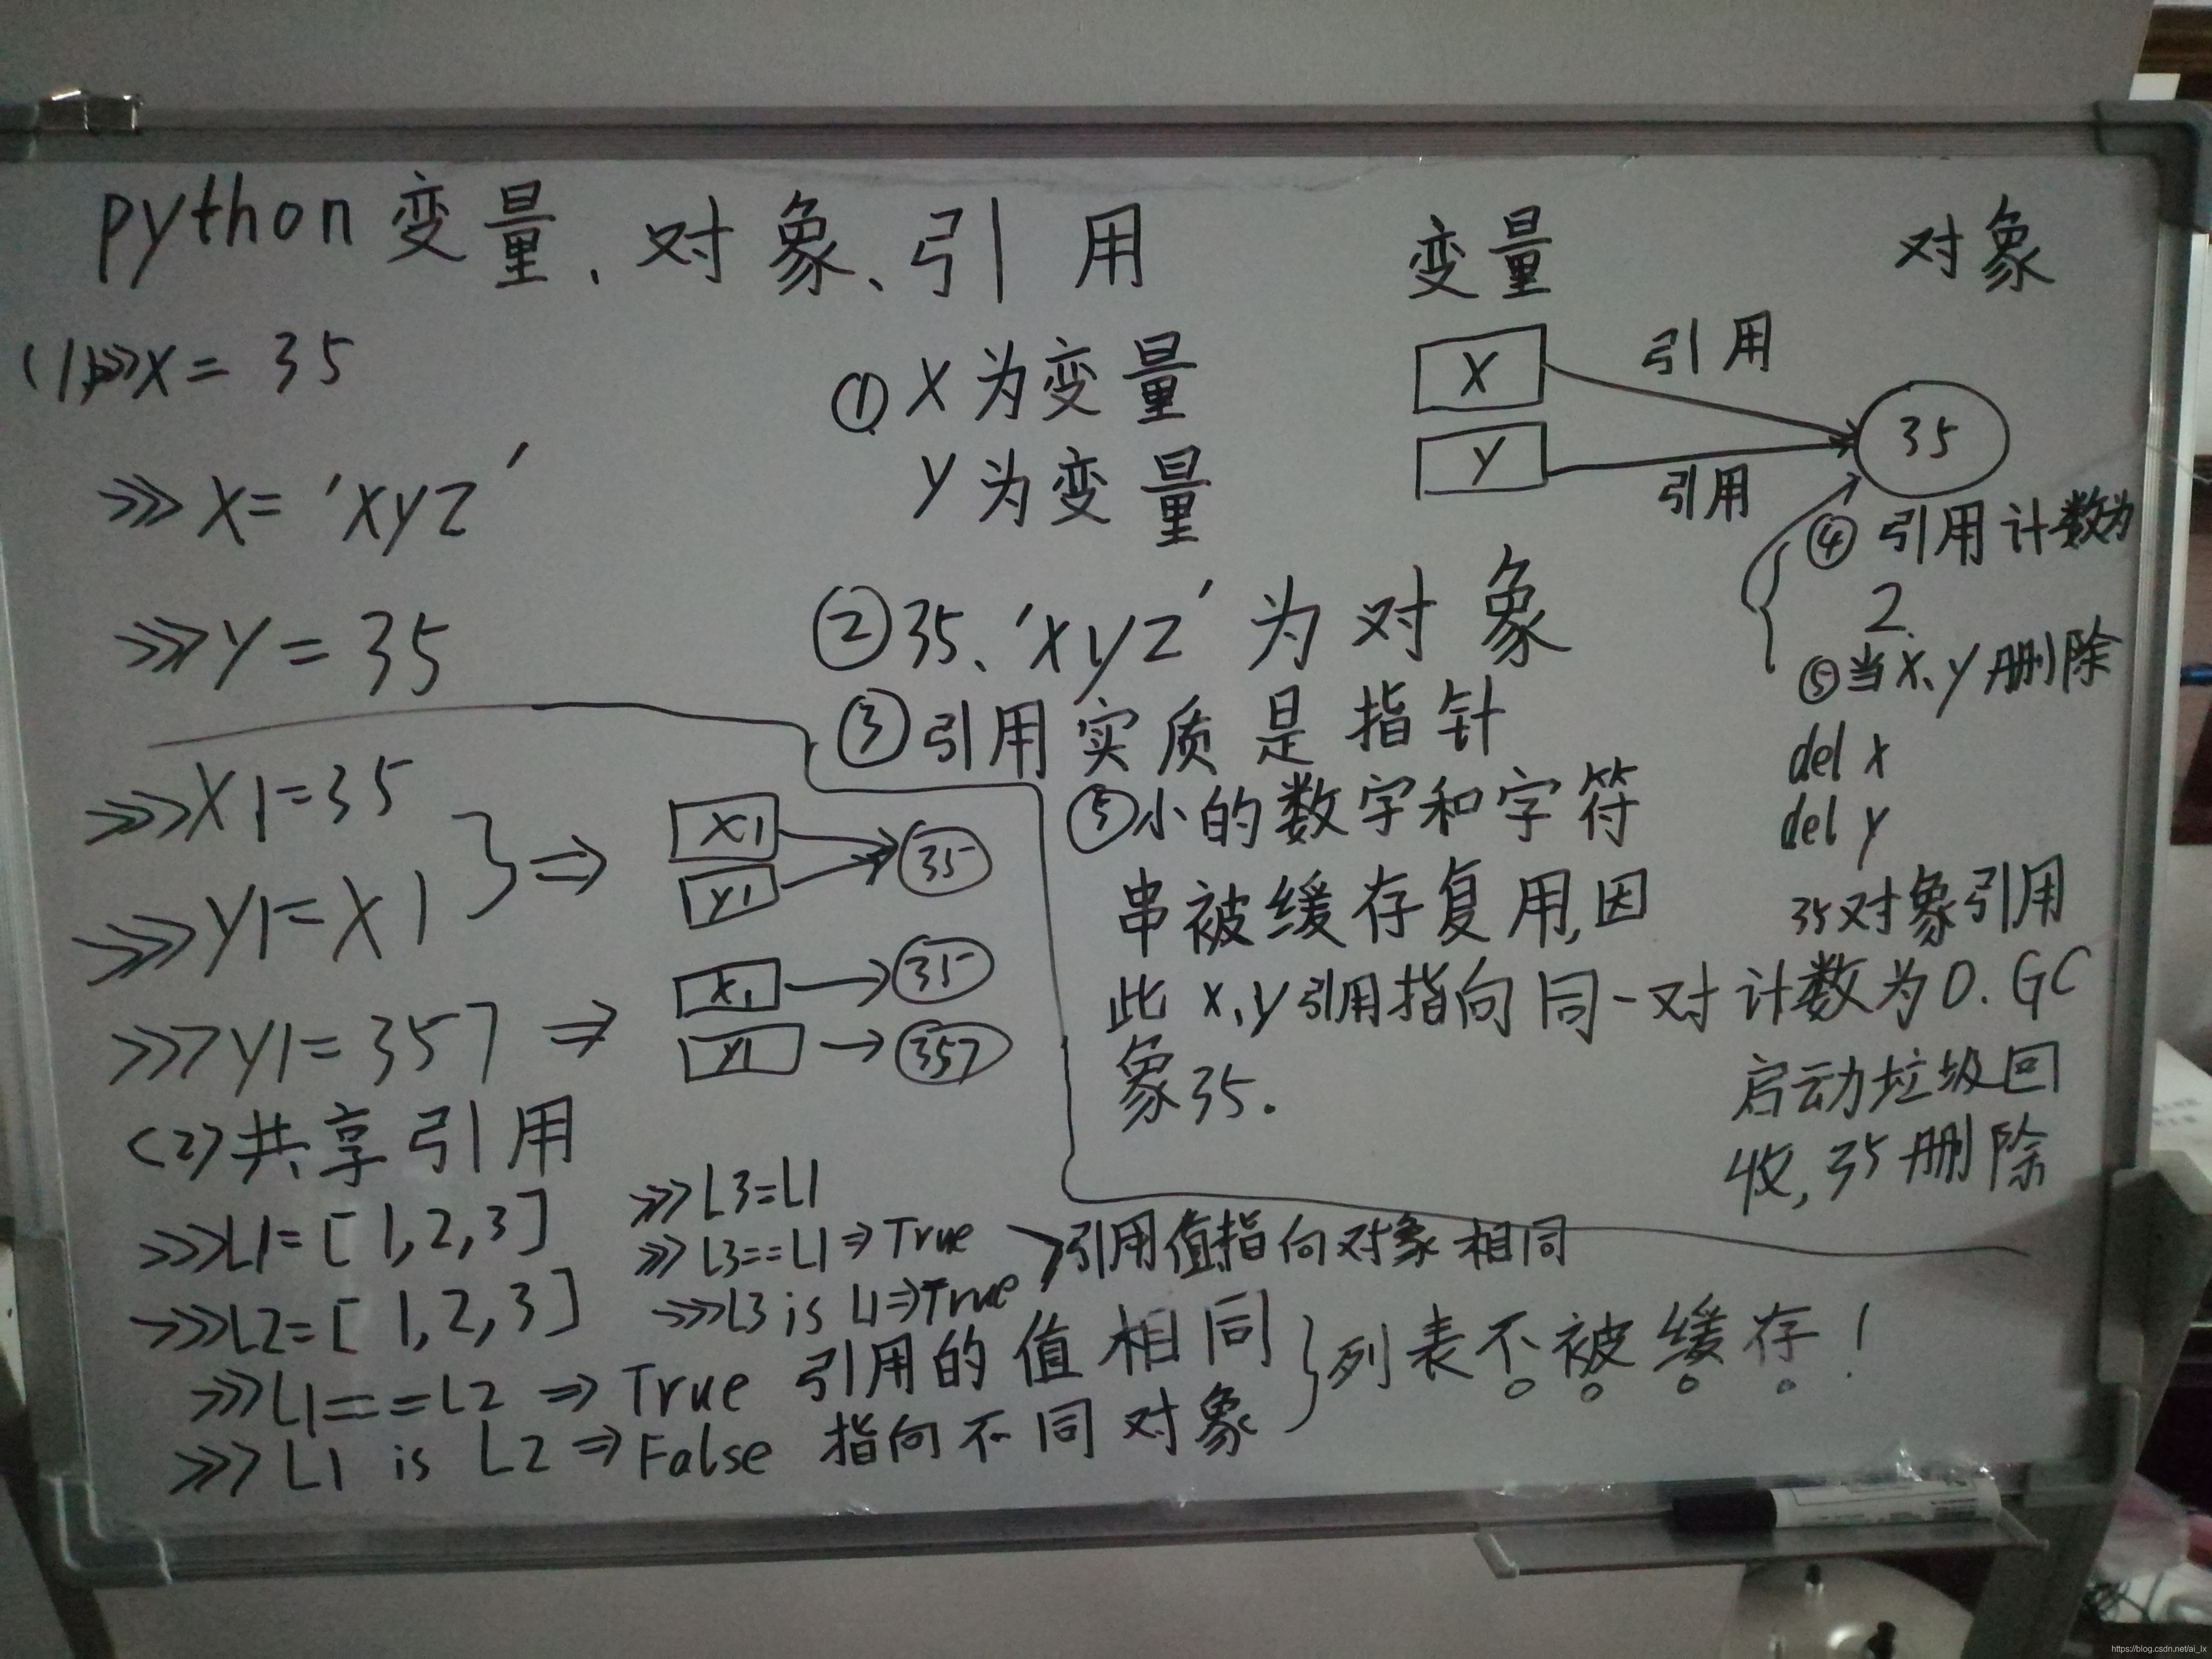 python变量、对象、引用
(1)>>>x = 35
>>> x = 'xyz'
>>> y = 35
① x为变量
y为变量
② 35、'xyz'为对象
③ 引用实质是指针
⑤ 小的数字和字符
串被缓存复用,因
此 x、y引用指向同一对
象35.
变量 对象
x 引用 35
y 引用
④ 引用计数为
2.
⑤当x、y删除
del x
del y
35对象引用
计数为0.GC
启动垃圾回
收,35删除
>>>x1=35
>>>y1=x1
⇒ x1 35
y1
>>>y1=357 ⇒ x1 → 35
y1 → 357
(2)共享引用
>>>L1=[1,2,3]
>>>L2=[1,2,3]
>>>L1==L2 ⇒ True 引用的值相同
>>>L1 is L2 ⇒ False 指向不同对象
列表不被缓存!
>>>L3=L1
>>>L3==L1⇒True
>>>L3 is L1⇒True
引用值,指向对象相同
https://blog.csdn.net/ai_lx